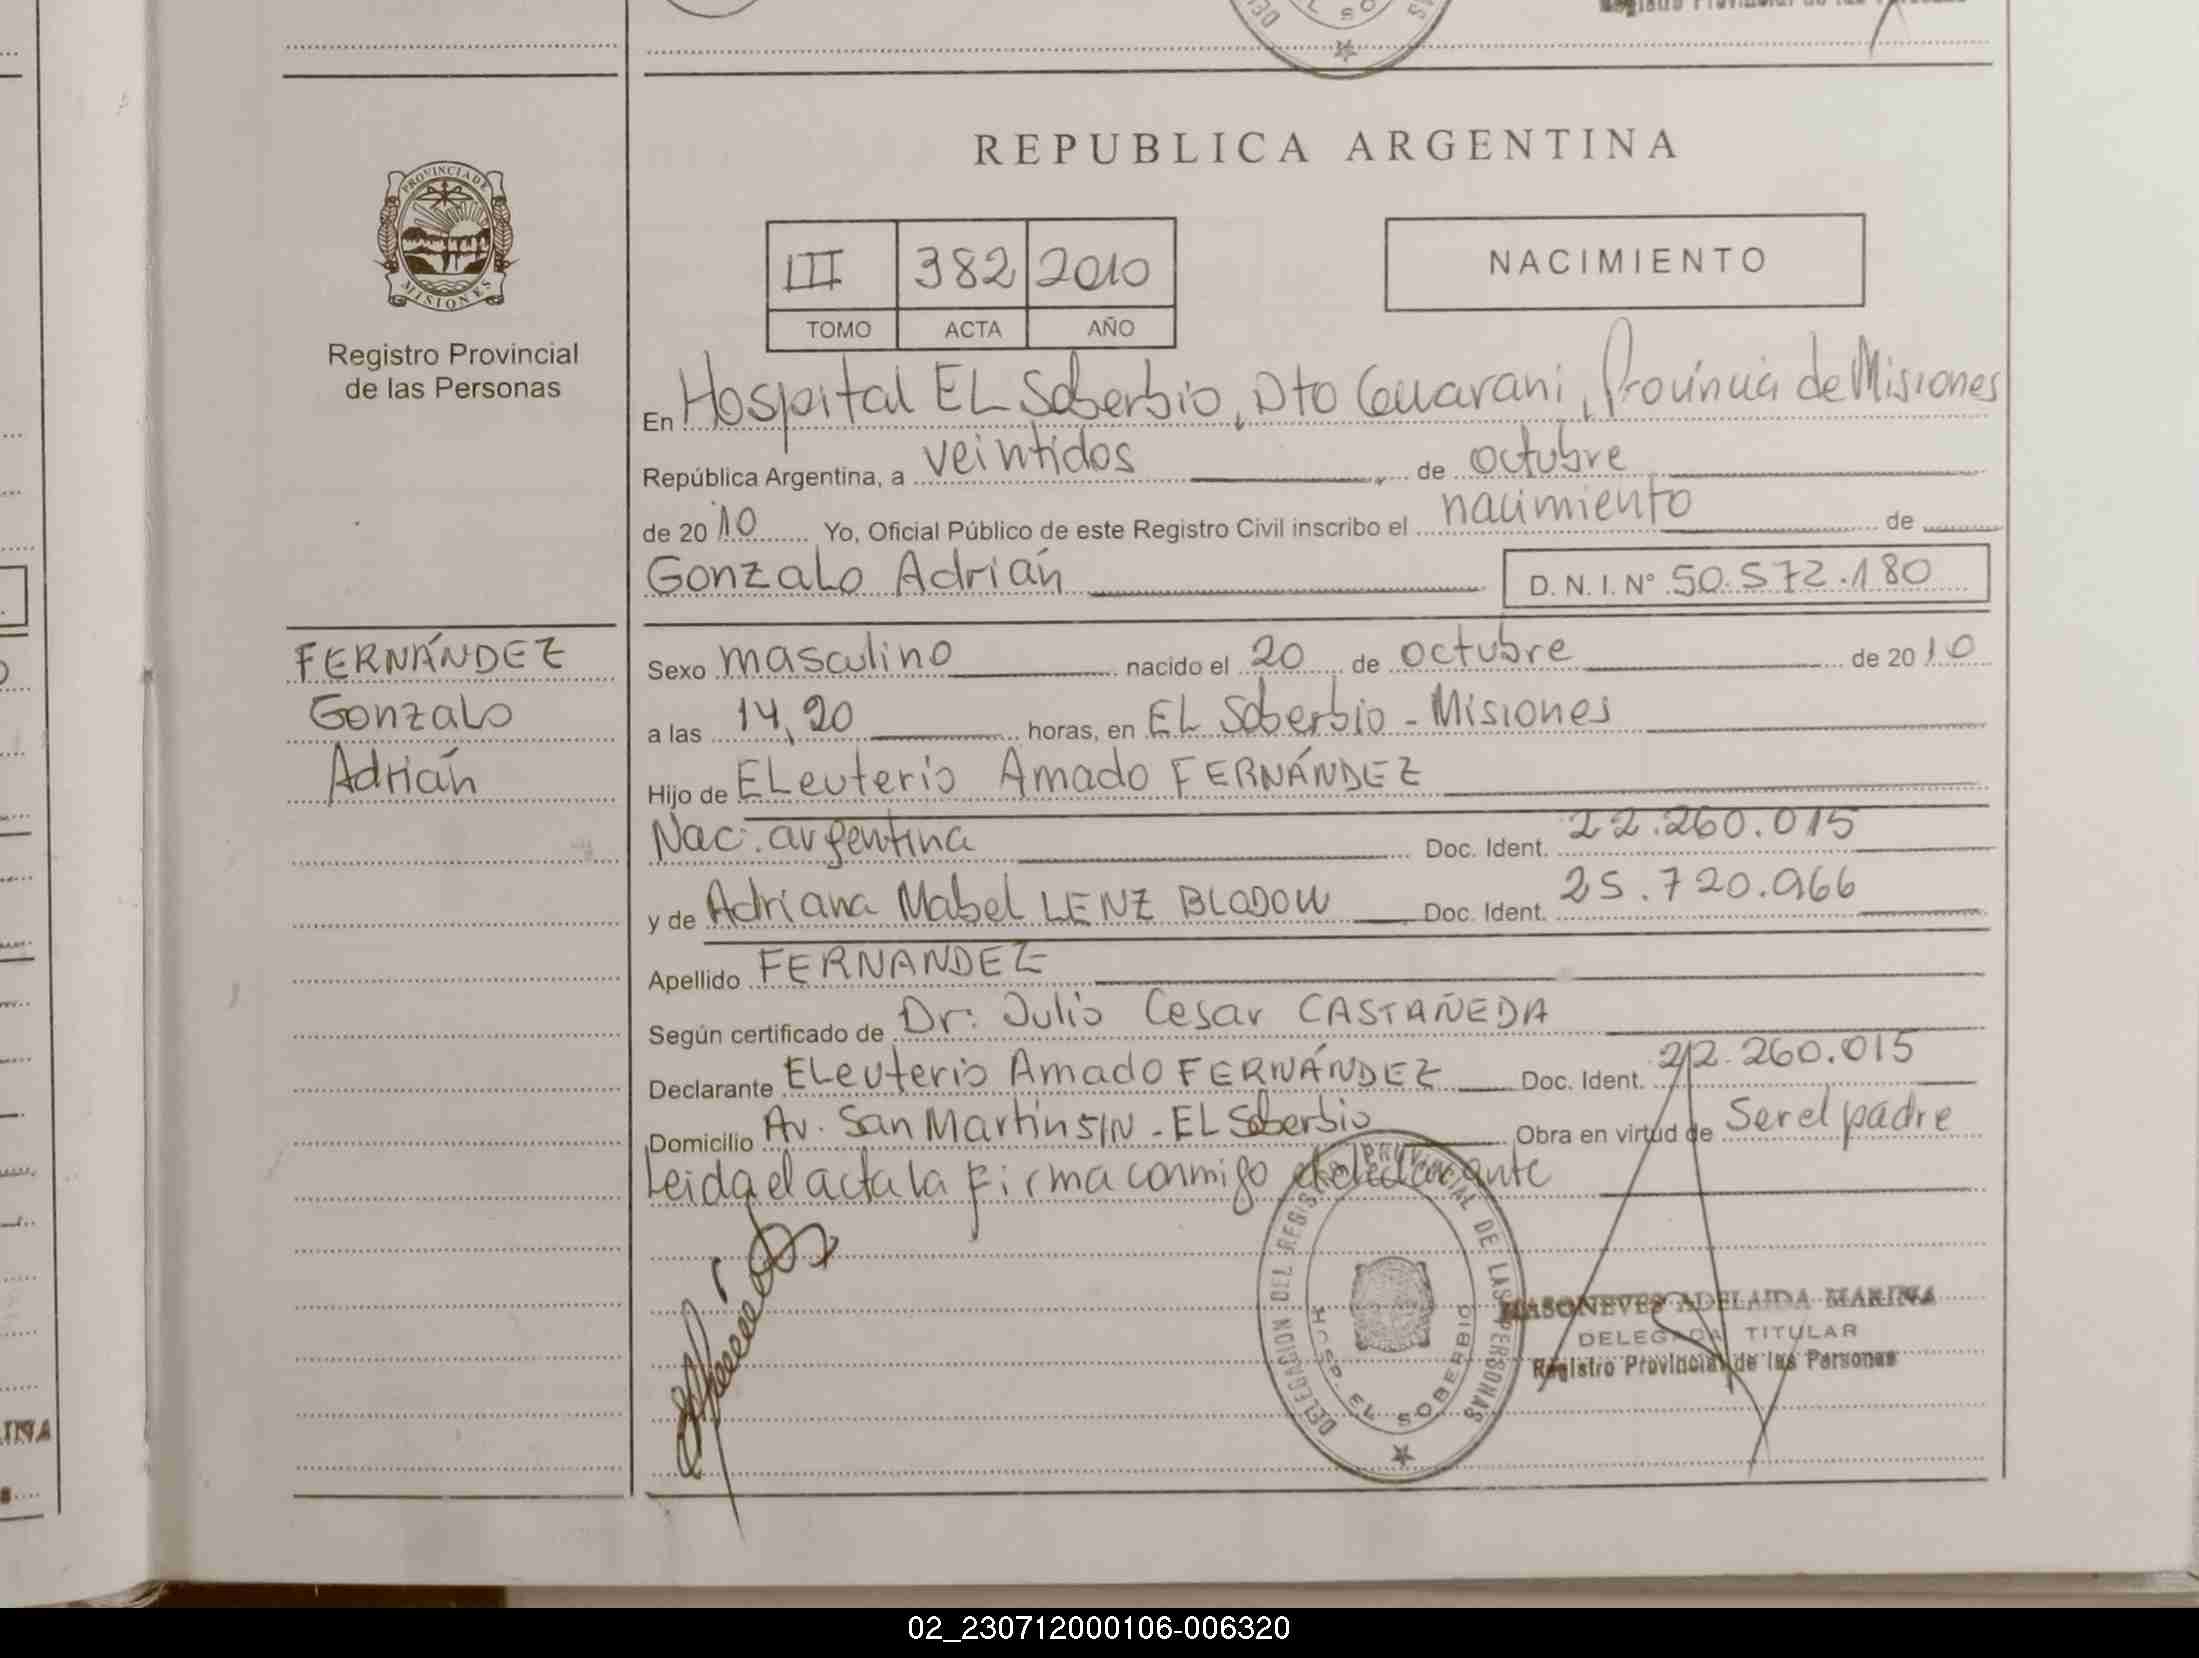 REPUBLICA ARGENTINA
PROVINCIA DE
MISIONES
Registro Provincial
de las Personas
III 382 2010
TOMO ACTA AÑO
NACIMIENTO
En Hospital EL Soberbio, Dto Guarani, Provincia de Misiones
República Argentina, a veintidos de octubre
de 2010 Yo, Oficial Público de este Registro Civil inscribo el nacimiento de
Gonzalo Adrián D. N. I. N° 50.572.180
FERNÁNDEZ
Gonzalo
Adrián
Sexo masculino nacido el 20 de octubre de 2010
a las 14,20 horas, en EL Soberbio - Misiones
Hijo de ELeuterio Amado FERNÁNDEZ
Nac: argentina Doc. Ident. 22.260.015
y de Adriana Mabel LENZ BLODOW Doc. Ident. 25.720.066
Apellido FERNANDEZ
Según certificado de Dr: Julio Cesar CASTAÑEDA
Declarante ELeuterio Amado FERNÁNDEZ Doc. Ident. 22.260.015
Domicilio Av. San Martin S/N - EL Soberbio Obra en virtud de Ser el padre
Leida el acta la Firma conmigo el declarante
DELEGACION DEL REGISTRO PROVINCIAL DE LAS PERSONAS
HOSP. EL SOBERBIO
MASONEVES ADELAIDA MARINA
DELEGADA TITULAR
Registro Provincial de las Personas
02_230712000106-006320